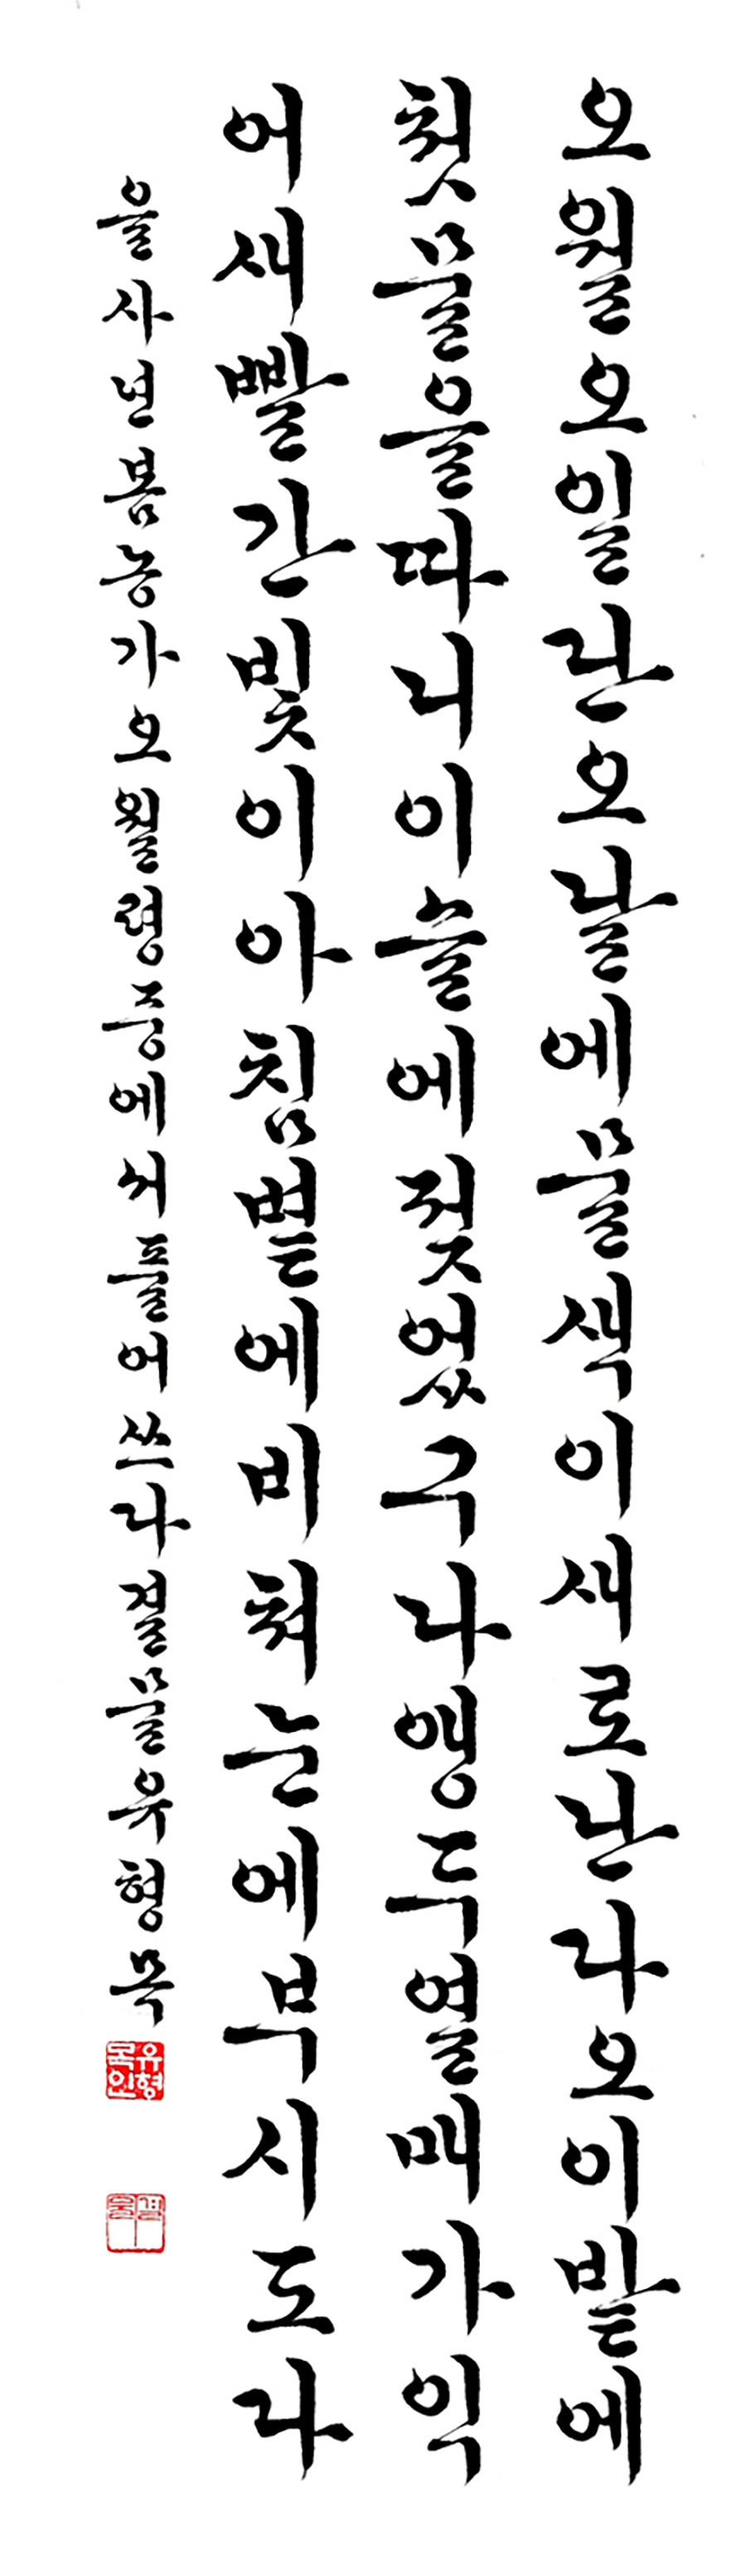 오월오일단오날에물색이새로난다오이밭에
첫물을따니이슬에젖었구나앵두열매가익
어새빨간빛이아침볕에비쳐눈에부시도다
을사년봄농가오월령중에서풀어쓰다결물유형목
유형목인